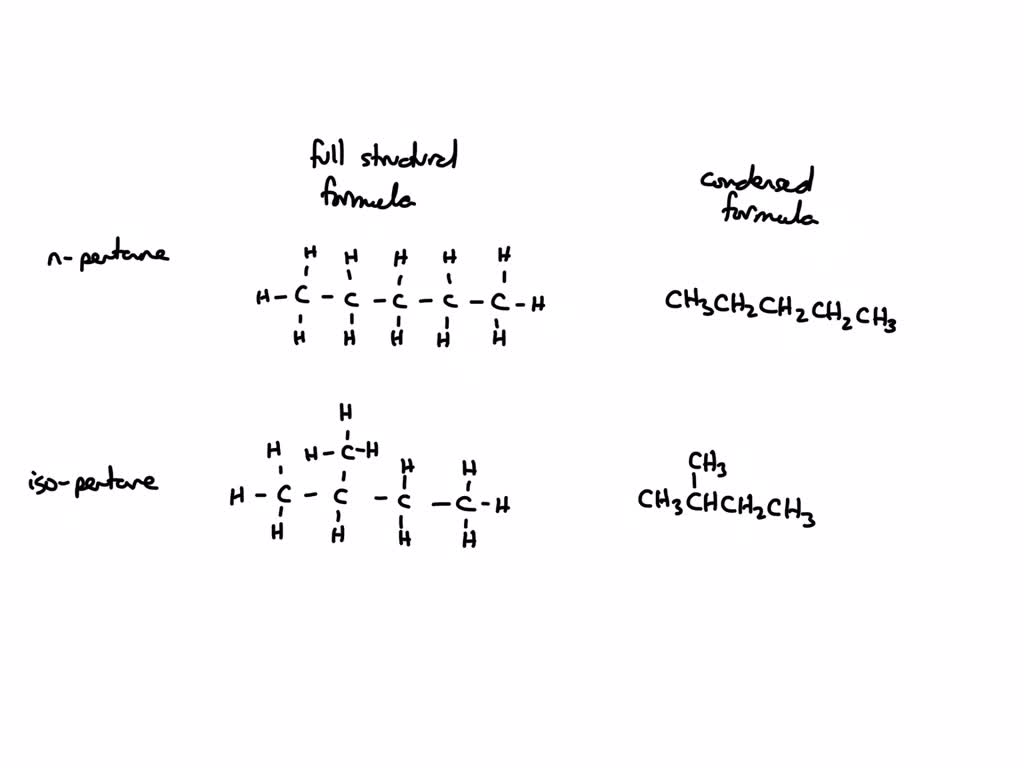 full structural
formula
condensed
formula
n-pentane
H H H H H
H-C-C-C-C-C-H
H H H H H
CH₃CH₂CH₂CH₂CH₃
H
H H-C-H H H
iso-pentane
H-C-C-C-C-H
H H H H
CH₃
CH₃CHCH₂CH₃